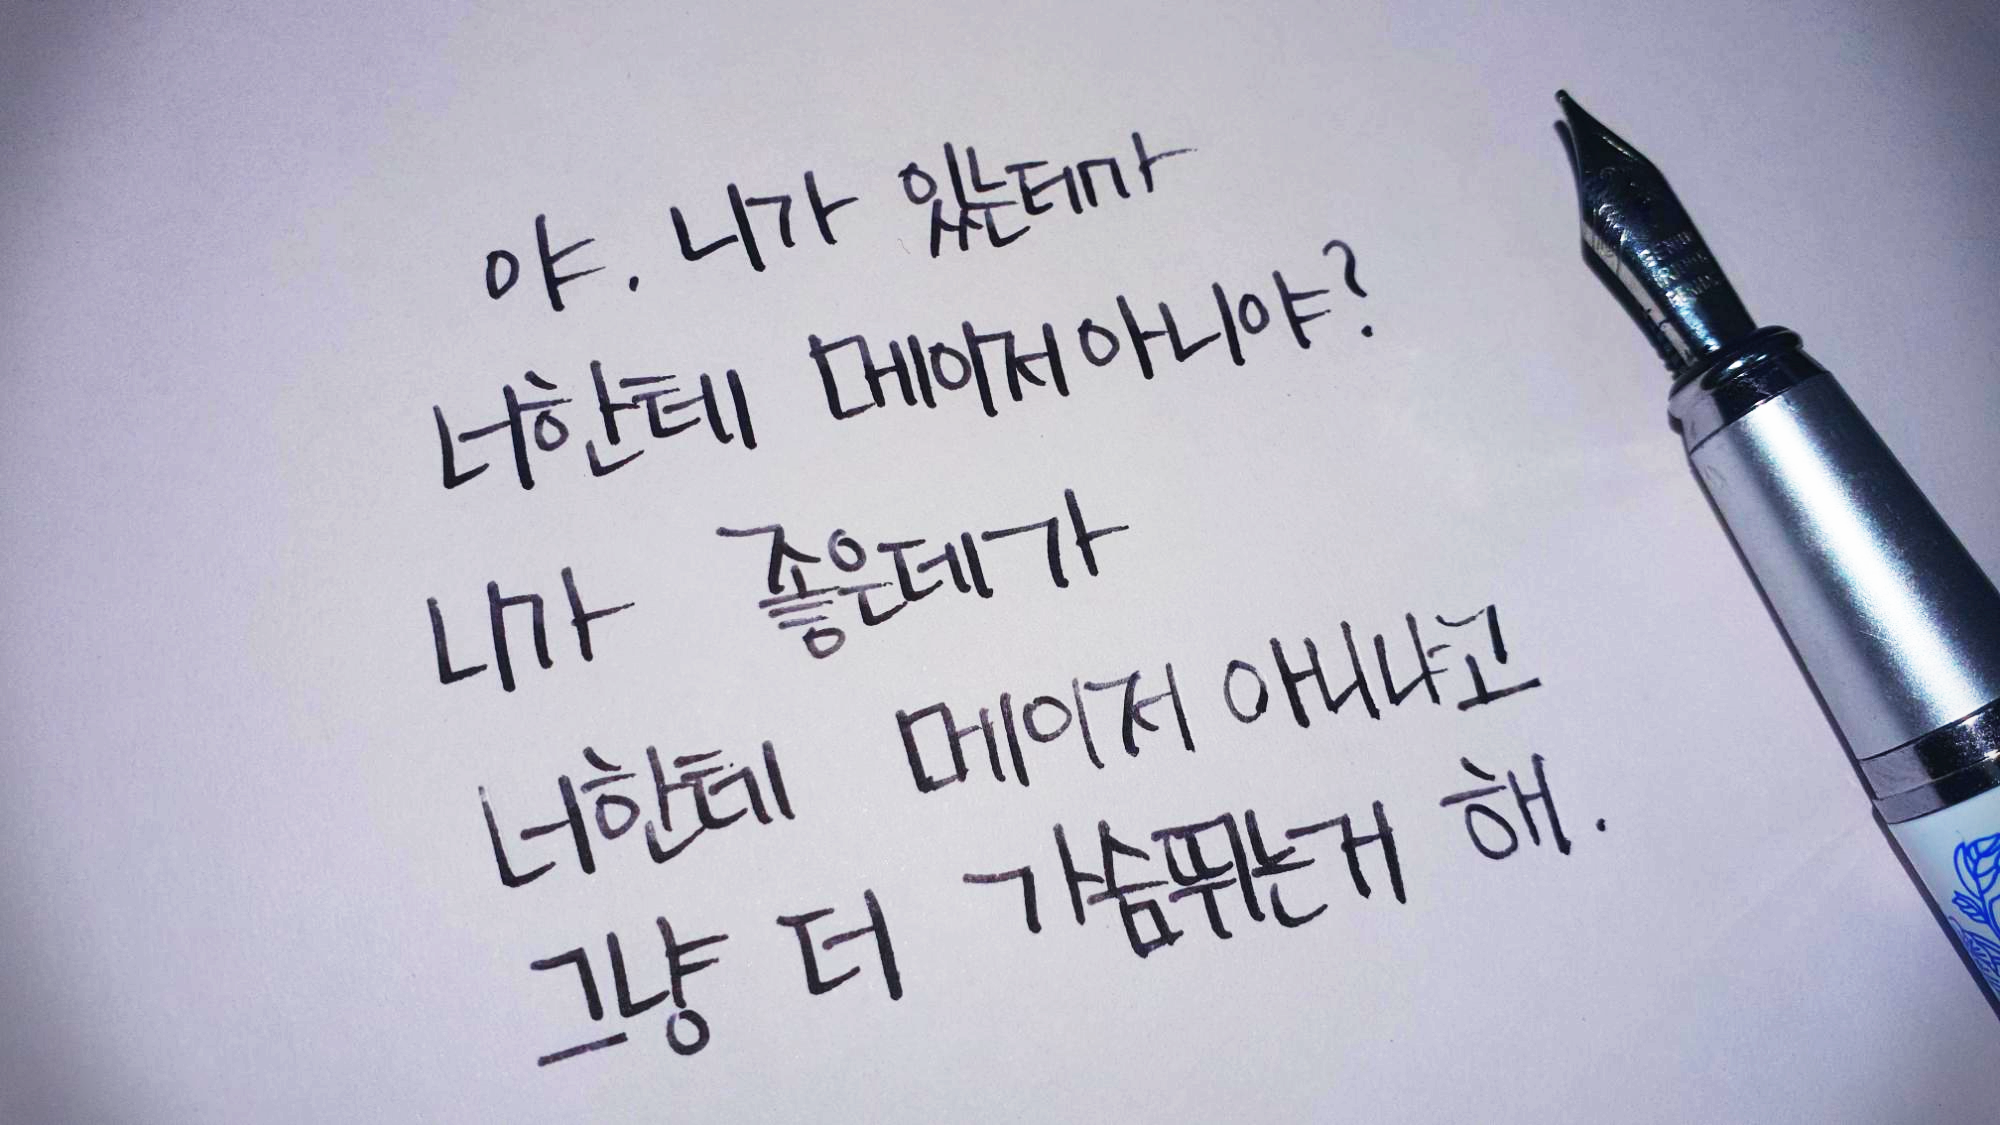 야. 니가 있는데가
너한테 메이저 아니야?
니가 좋은데가
너한테 메이저 아니냐고
그냥 더 가슴뛰는거 해.